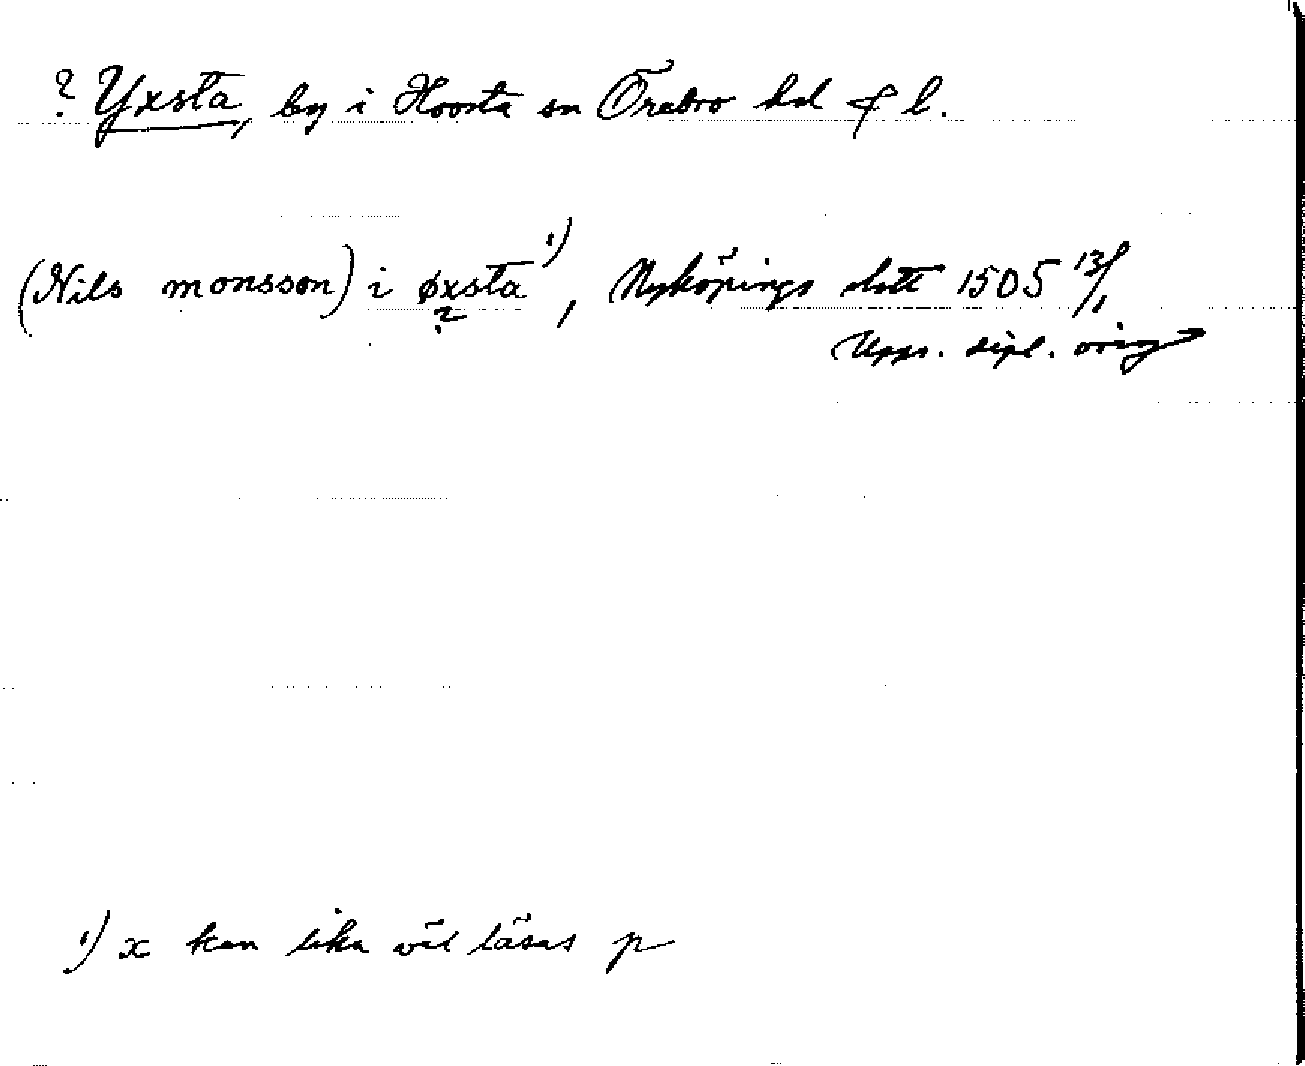 ? Yxsta, by i Hovsta sn Örebro hd & l.
(Nils monsson) i øxsta ¹), Nyköpings slott 1505 13/1
?
Upps. dipl. orig
¹) x kan lika väl läsas p